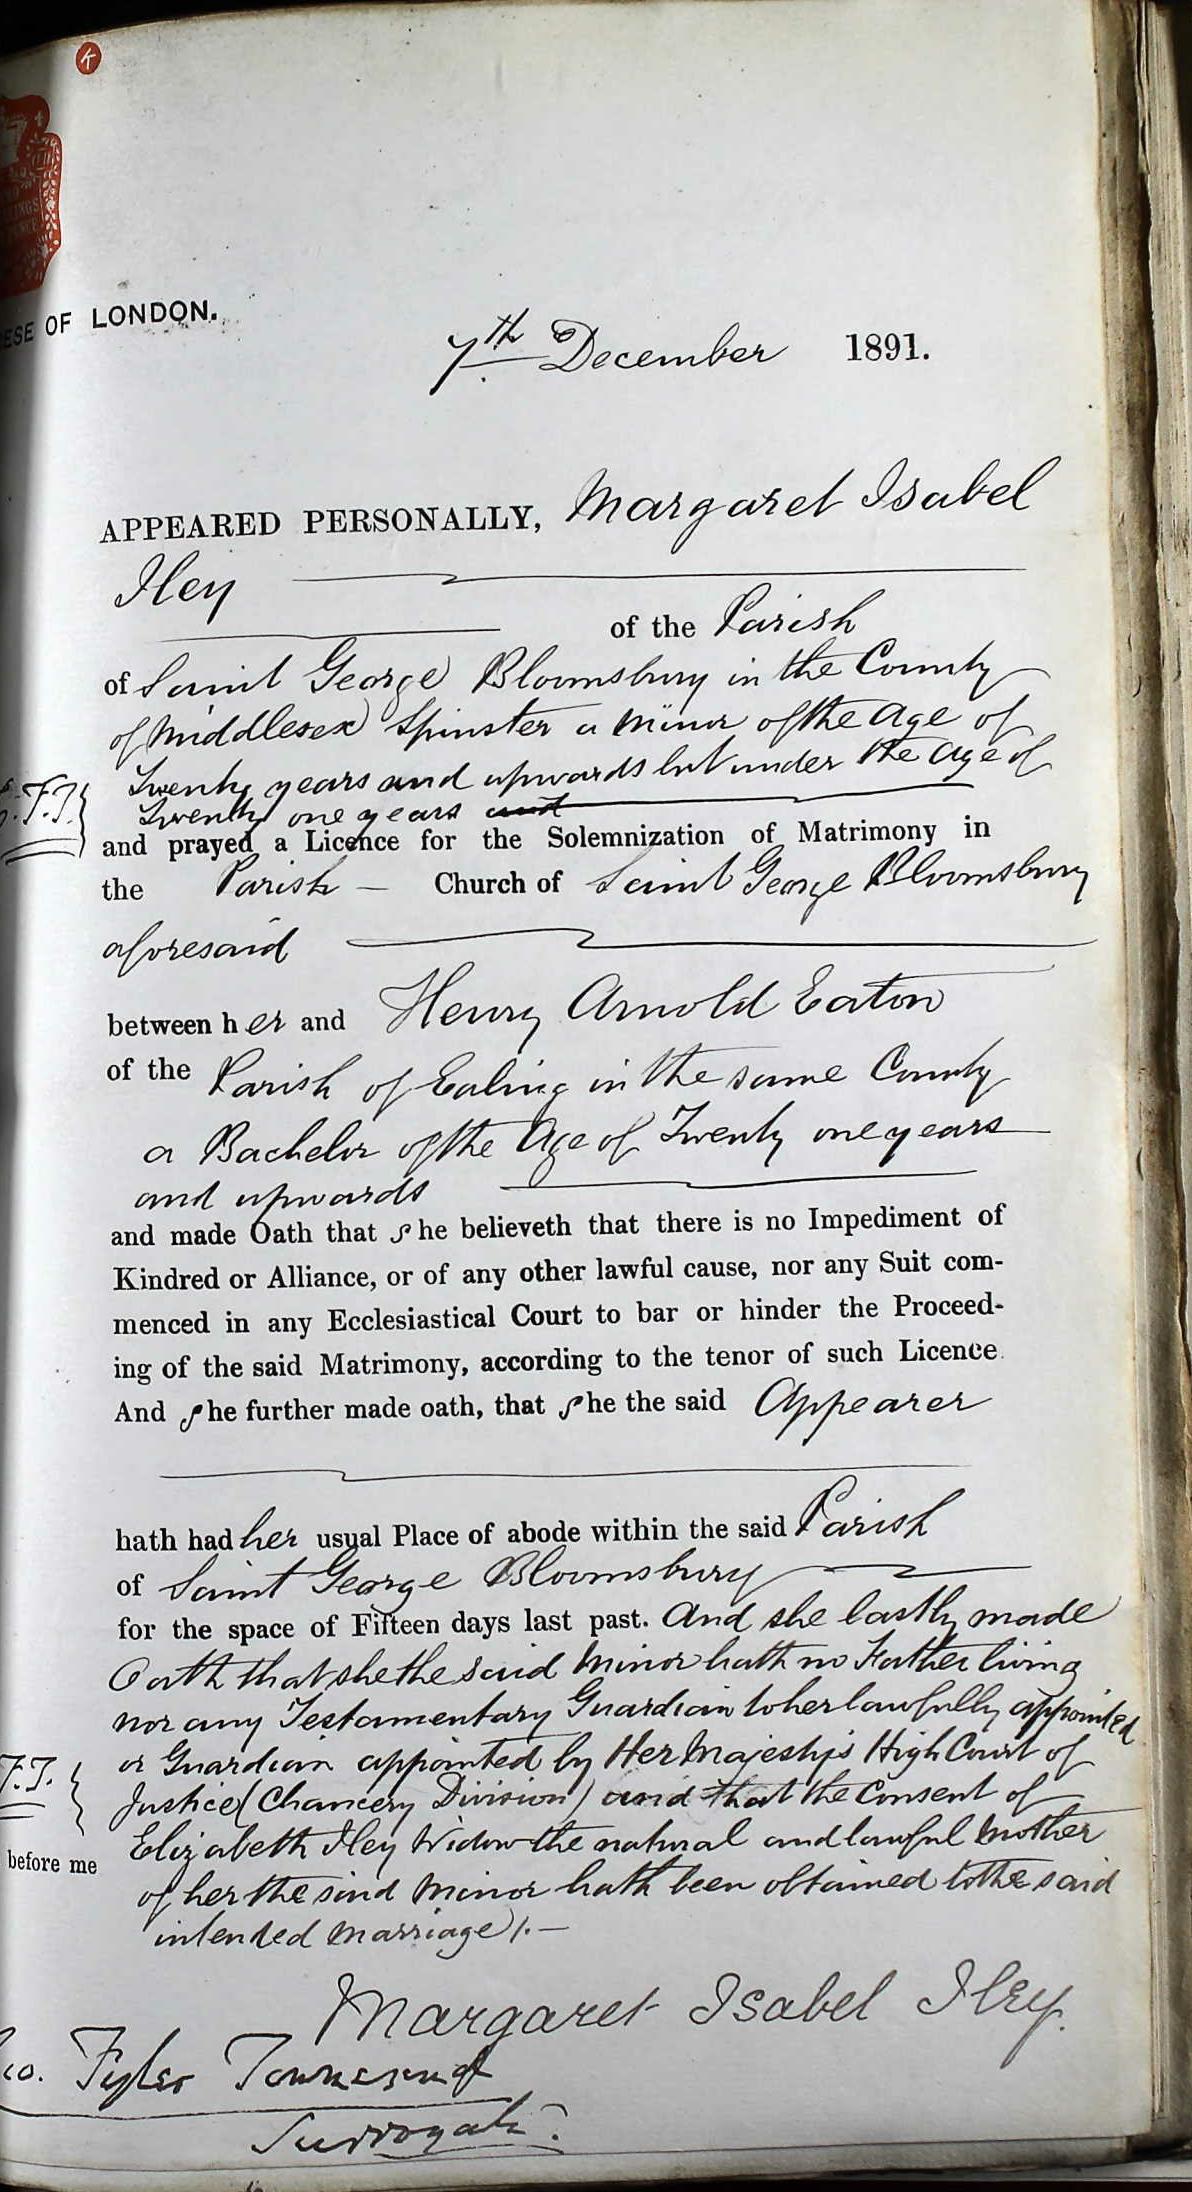 K
ESE OF LONDON.
7th December 1891.
APPEARED PERSONALLY, Margaret Isabel
Iley
of the Parish
of Saint George Bloomsbury in the County
of Middlesex Spinster a Minor of the Age of
Twenty years and upwards but under the Age of
F.T. Twenty one years and
and prayed a Licence for the Solemnization of Matrimony in
the Parish – Church of Saint George Bloomsbury
aforesaid
between her and Henry Arnold Eaton
of the Parish of Ealing in the same County
a Bachelor of the Age of Twenty one years
and upwards
and made Oath that she believeth that there is no Impediment of
Kindred or Alliance, or of any other lawful cause, nor any Suit com-
menced in any Ecclesiastical Court to bar or hinder the Proceed-
ing of the said Matrimony, according to the tenor of such Licence.
And she further made oath, that she the said Appearer
hath had her usual Place of abode within the said Parish
of Saint George Bloomsbury
for the space of Fifteen days last past. And she lastly made
Oath that she the said Minor hath no Father living
nor any Testamentary Guardian to her lawfully appointed
or Guardian appointed by Her Majesty's High Court of
F.T. Justice (Chancery Division) and that the Consent of
Elizabeth Iley Widow the natural and lawful Mother
before me
of her the said Minor hath been obtained to the said
intended Marriage).–
Margaret Isabel Iley.
eo. Tyler Townsend
Surrogate.